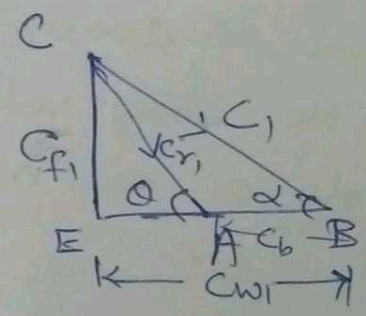 C
C₁
Cf₁ Cr₁
θ α
E A Cb B
Cw₁